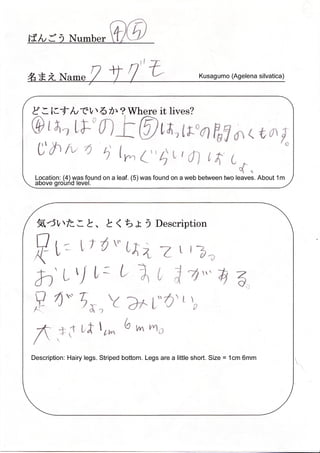 ばんごう Number ④⑤
名まえ Name クサグモ
Kusagumo (Agelena silvatica)
どこにすんでいるか？Where it lives?
④はっぱの上⑤はっぱの間のくものす
じめんから1mぐらいのばしょ。
Location: (4) was found on a leaf. (5) was found on a web between two leaves. About 1m
above ground level.
気づいたこと、とくちょう Description
足にけがはえている。
おしりにしましまがある。
足がちょっとみじかい。
大きさは1cm 6mm。
Description: Hairy legs. Striped bottom. Legs are a little short. Size = 1cm 6mm